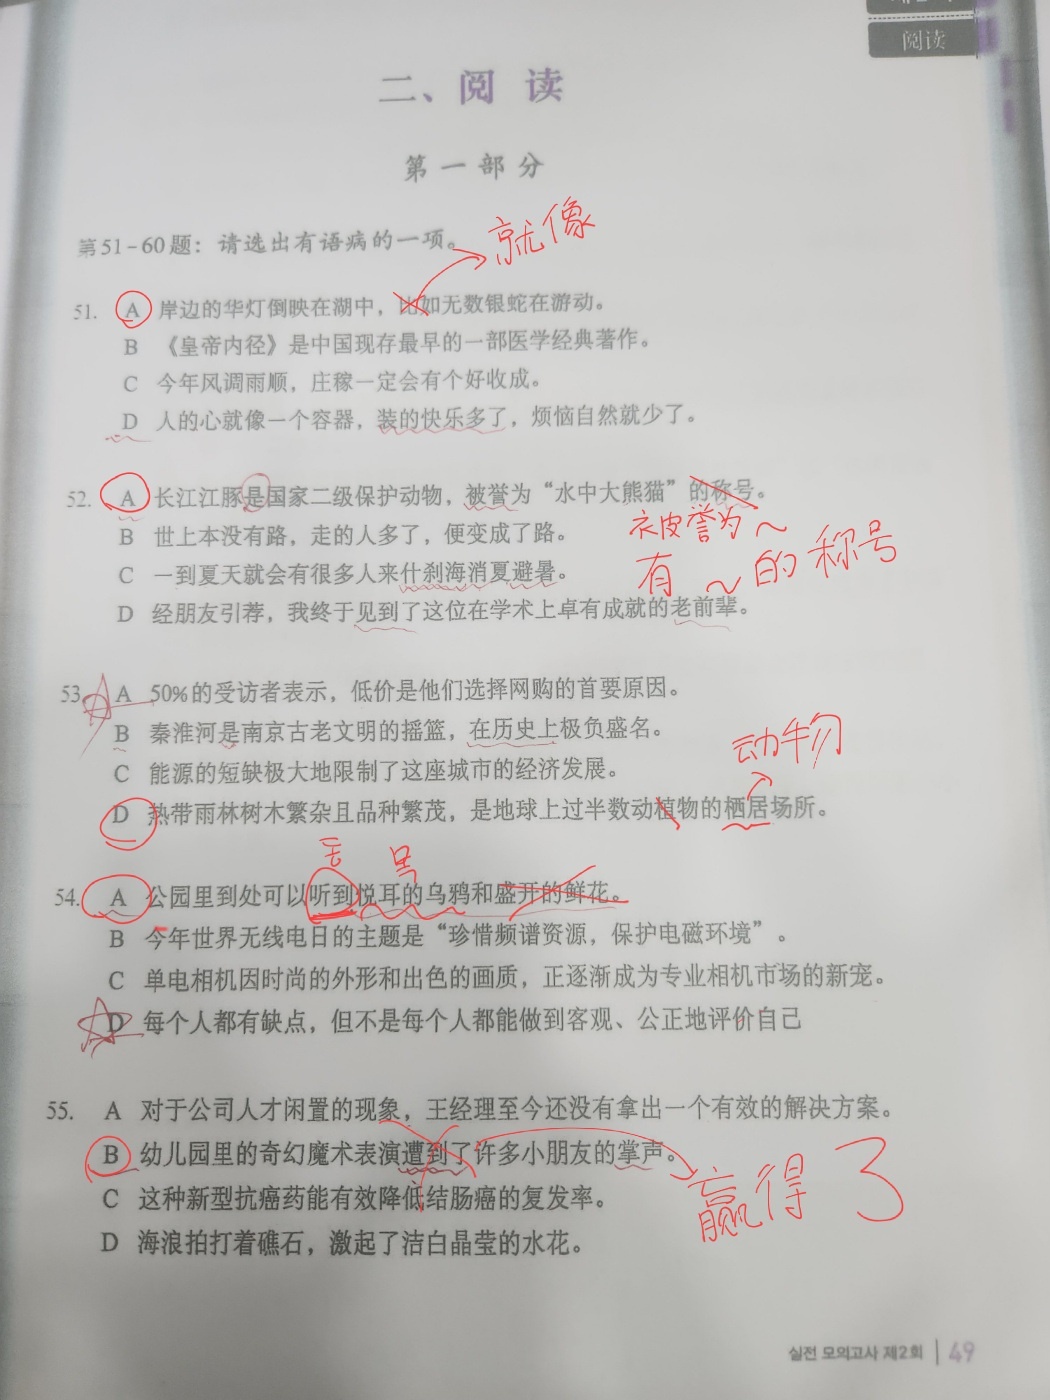 阅读
二、阅 读
第 一 部 分
第51-60题：请选出有语病的一项。
就像
51. A 岸边的华灯倒映在湖中，比如无数银蛇在游动。
B 《皇帝内径》是中国现存最早的一部医学经典著作。
C 今年风调雨顺，庄稼一定会有个好收成。
D 人的心就像一个容器，装的快乐多了，烦恼自然就少了。
52. A 长江江豚是国家二级保护动物，被誉为“水中大熊猫”的称号。
被誉为～
B 世上本没有路，走的人多了，便变成了路。
有～的称号
C 一到夏天就会有很多人来什刹海消夏避暑。
D 经朋友引荐，我终于见到了这位在学术上卓有成就的老前辈。
53. A 50%的受访者表示，低价是他们选择网购的首要原因。
B 秦淮河是南京古老文明的摇篮，在历史上极负盛名。
动物
C 能源的短缺极大地限制了这座城市的经济发展。
D 热带雨林树木繁杂且品种繁茂，是地球上过半数动植物的栖居场所。
54. A 公园里到处可以听到悦耳的乌鸦和盛开的鲜花。
B 今年世界无线电日的主题是“珍惜频谱资源，保护电磁环境”。
C 单电相机因时尚的外形和出色的画质，正逐渐成为专业相机市场的新宠。
D 每个人都有缺点，但不是每个人都能做到客观、公正地评价自己
55. A 对于公司人才闲置的现象，王经理至今还没有拿出一个有效的解决方案。
B 幼儿园里的奇幻魔术表演遭到了许多小朋友的掌声。
赢得了
C 这种新型抗癌药能有效降低结肠癌的复发率。
D 海浪拍打着礁石，激起了洁白晶莹的水花。
실전 모의고사 제2회 49